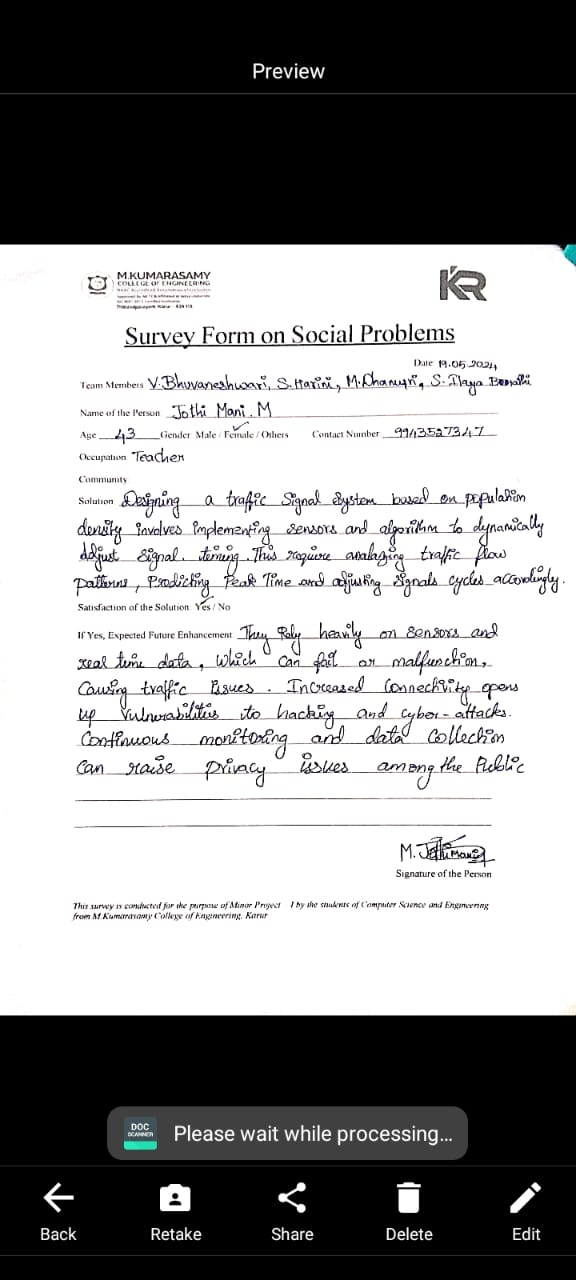 Preview
M.KUMARASAMY
COLLEGE OF ENGINEERING
KR
Survey Form on Social Problems
Date 19.05.2024
Team Members V.Bhuvaneshwari, S.Harini, M.Dhanusri, S.Ilaya
Name of the Person Jothi Mani.M
Age 43 Gender Male / Female / Others Contact Number 9943527347
Occupation Teacher
Community
Solution Designing a traffic Signal System based on population
density involves implementing sensors and algorithm to dynamically
adjust signal. teming. This require analazing traffic flow
patterns, Prodicting Peak Time and adjusting signals cycles accordingly.
Satisfaction of the Solution Yes / No
If Yes, Expected Future Enhancement They Raly heavily on sensors and
real time data, which can fail or malfunction,
Causing traffic issues. Increased Connectivity opens
up Vulnurabilities to hacking and cyber-attacks.
Continuous monitoring and data Collection
Can raise privacy issues among the Public
M. Jothi Mani
Signature of the Person
This survey is conducted for the purpose of Minor Project I by the students of Computer Science and Engineering
from M.Kumarasamy College of Engineering, Karur
DOC
SCANNER
Please wait while processing...
Back Retake Share Delete Edit